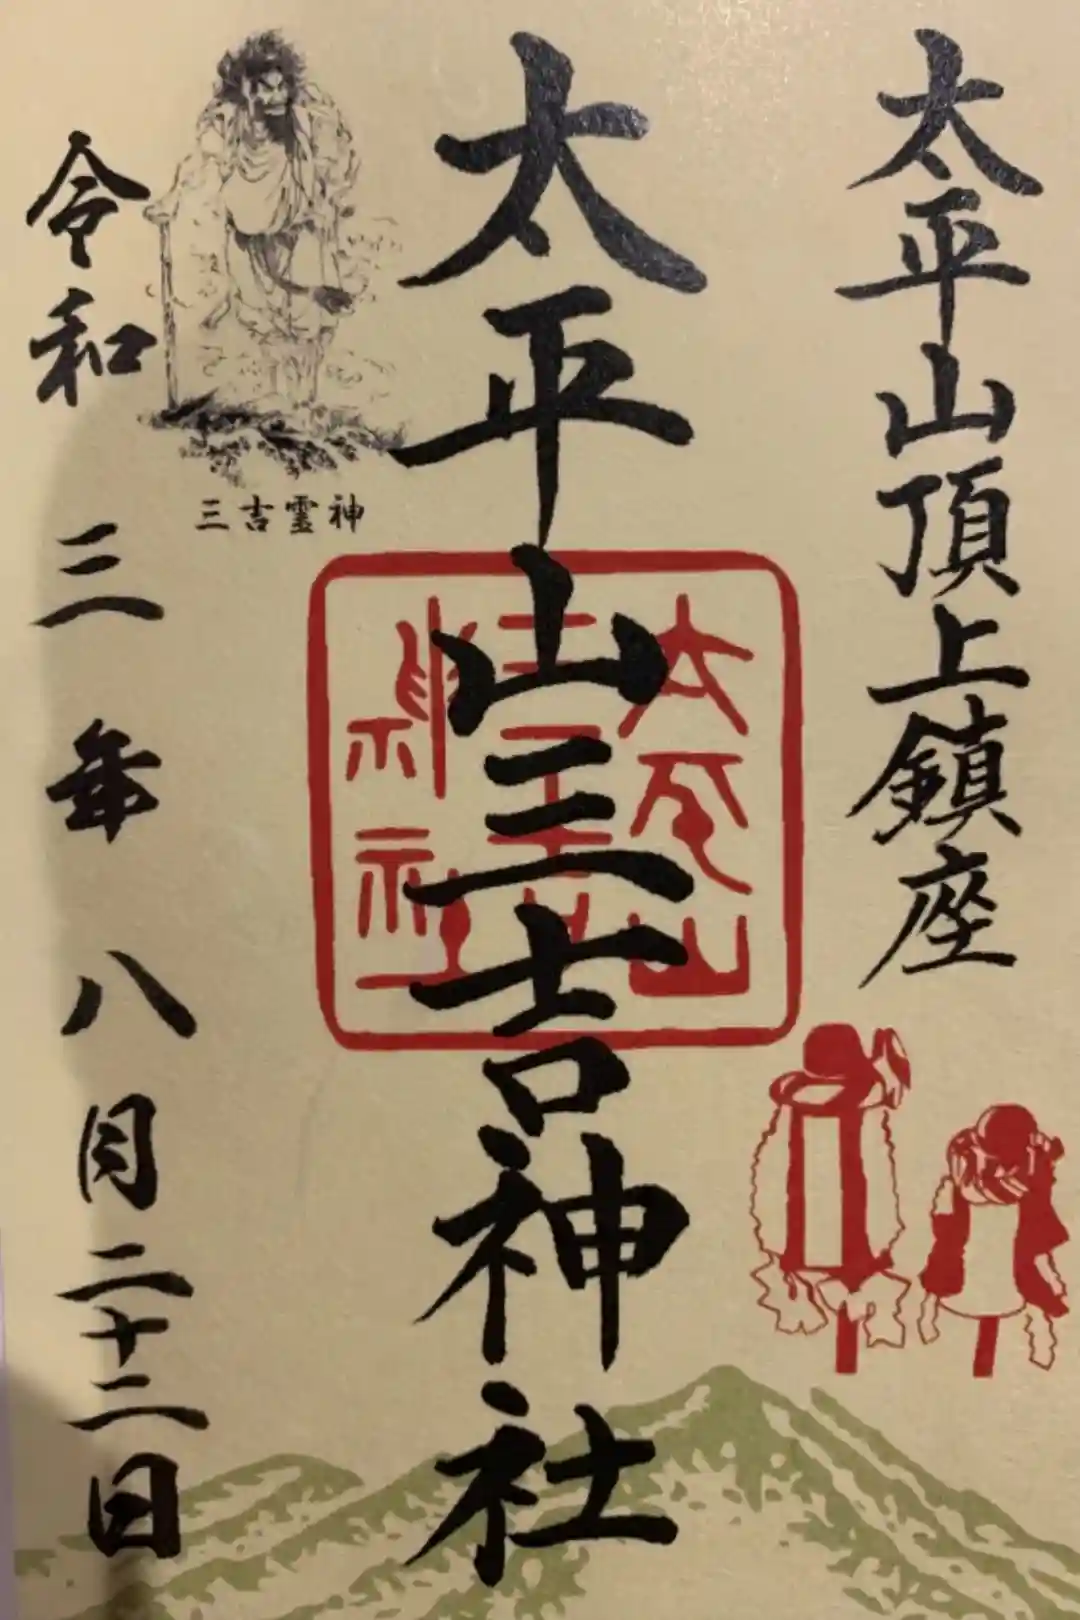 太平山頂上鎮座
太平山三吉神社
太平山
三吉
神社
三吉霊神
令和三年八月二十二日